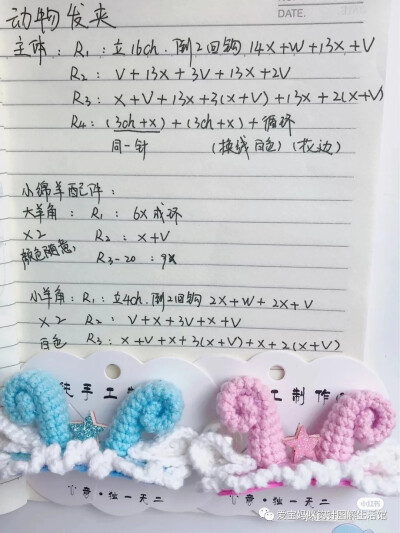 DATE.
动物发夹
主体：R1：立16ch.倒2回钩 14X+W+13X+V
R2：V+13X+3V+13X+2V
R3：X+V+13X+3(X+V)+13X+2(X+V)
R4：(3ch+X)+(3ch+X)+循环
同一针 (换线白色)(花边)
小绵羊配件：
大羊角：R1：6X成环
X2 R2：X+V
颜色随意 R3-20：9X
小羊角：R1：立4ch.倒2回钩 2X+W+2X+V
X2 R2：V+X+3V+X+V
白色 R3：X+V+X+3(X+V)+X+2(X+V)
纯手工制
工制作
心意·独一无二
心意·独一无二
小红书